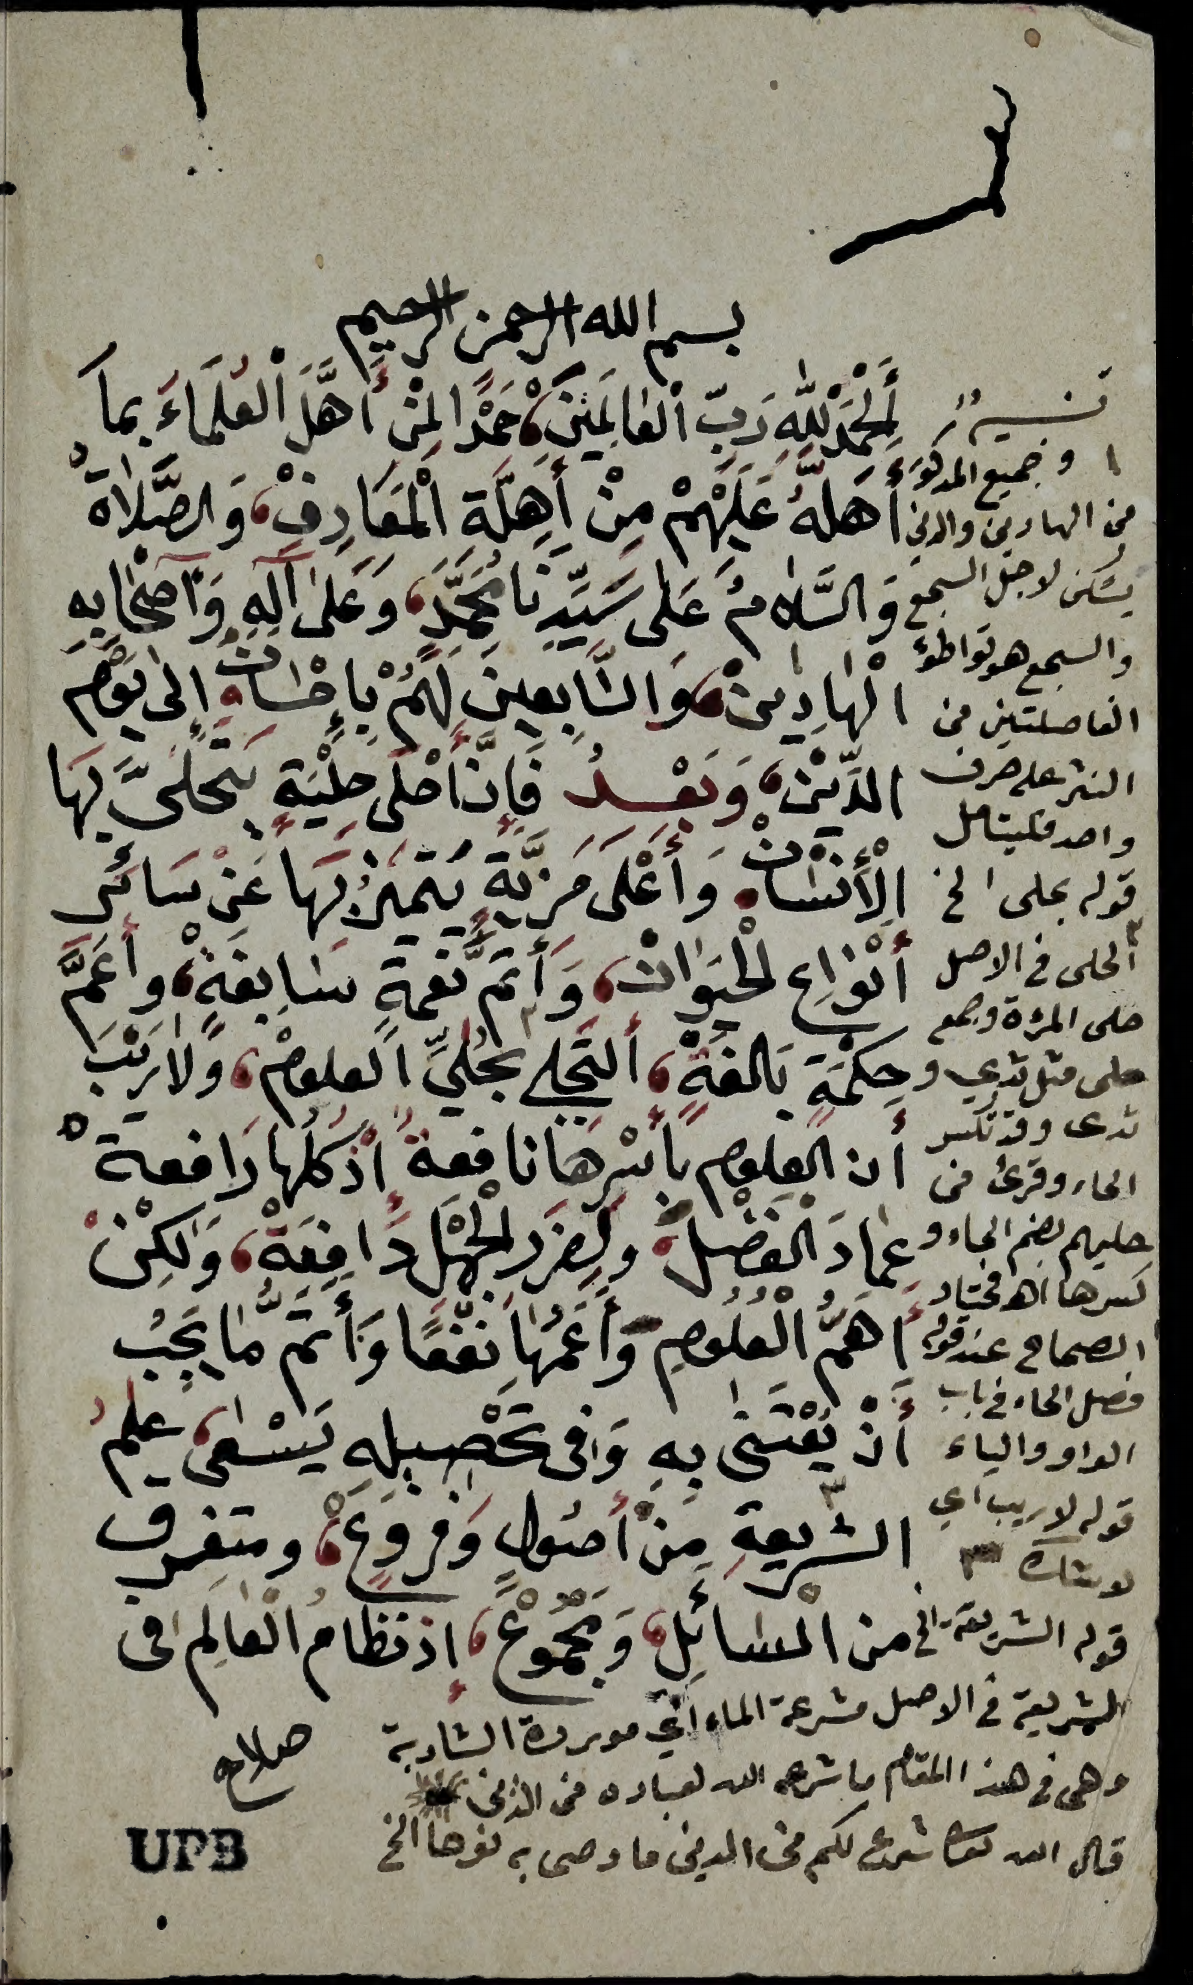 بسم الله الرحمن الرحيم
أَلْحَمْدُ لِلّٰهِ رَبِّ الْعَالَمِينَ، حَمْدًا لِمَنْ أَهَّلَ الْعُلَمَاءَ بِمَا
أَهَلَّهُ عَلَيْهِمْ مِنْ أَهِلَّةِ الْمَعَارِفْ، وَالصَّلَاةُ
وَالسَّلَامُ عَلَى سَيِّدِنَا مُحَمَّدٍ، وَعَلَى آلِهِ وَأَصْحَابِهِ
الْهَادِينْ، وَالتَّابِعِينَ لَهُمْ بِإِحْسَانٍ إِلَى يَوْمِ
الدِّيْنْ، وَبَعْدُ فَإِنَّ أَحْلَى حِلْيَةٍ يَتَحَلَّى بِهَا
الْأِنْسَانْ وَأَعْلَى مَزِيَّةٍ يَتَمَيَّزُ بِهَا عَنْ سَائِرِ
أَنْوَاعِ الْحَيَوَانْ، وَأَتَمَّ نِعْمَةٍ سَابِغَةْ، وأَعَمَّ
حِكْمَةٍ بَالِغَةْ، أَلتَّحَلِّي بِحُلِيِّ الْعلومْ، وَلَا رَيْبَ
أن العلوم بِأَسْرِهَا نافعة إذ كلها رافعة
عِمَادَ الْفَضْلْ، وَلِضَرَرِ الْجَهْلِ دَافِعَةْ، وَلٰكِنْ
أَهَمُّ الْعُلُومِ وَأَعَمُّهَا نَفْعًا وَأَتَمُّ مَا يَجِبُ
أَنْ يُعْتَنٰى بِهِ وَفِى تَحْصِيلِهِ يُسْعٰى، عِلْمُ
الشريعةِ مِنْ أُصُولٍ وَفُرُوعٍ، ومتفرق
من الْمَسَائِلِ، وَمَجْمُوعْ، إِذ نظامُ الْعَالَمِ فى
وجميع المذكور
من الهادين والدين
يسكن لاجل السجع
والسجع هو تواطؤ
الفاصلتين من
النثر على حرف
واحد فليتامل
قوله بحلى الخ
الحلى فى الاصل
حلى المرءة وجمع
حلى مثل ثدي و
ثدى وقد تكسر
الحاء وقرئ من
حليهم بضم الحاء و
كسرها اهـ مختار
الصحاح عند قوله
فصل الحاء فى باب
الواو والياء
قوله لا ريب اي
لا شك
قوله الشريعة الخ
الشريعة فى الاصل مشرعة الماء اي موردة الشاربة
وهى فى هذا المقام ما شرعه الله لعباده من الدين
قال الله تعا شرع لكم من الدين ما وصى به نوحا الخ
صلاح
UPB